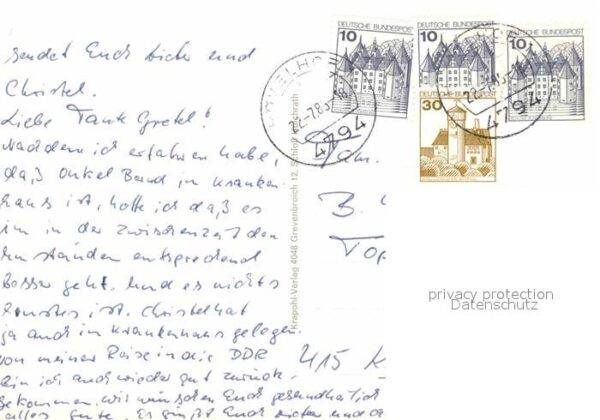 sendet Euch Dieter und
Christel.
Liebe Tante Gretel!
Nachdem ich erfahren habe,
daß Onkel Bernd in Kranken
haus ist, hoffe ich daß es
im in der zwischenzeit den
Umständen entsprechend
besser geht. Und es nichts
Ernstes ist. Christel hat
ja auch im Krankenhaus gelegen.
von meiner Reise in die DDR
bin ich auch wieder gut zurück
gekommen. Wir wünschen Euch gesundheitlich
alles gute. Es grüßt Euch Dieter und
Krapohl-Verlag 4048 Grevenbroich 12, Schloß
DEUTSCHE BUNDESPOST
10
DEUTSCHE BUNDESPOST
10
DEUTSCHE BUNDESPOST
10
DEUTSCHE BUNDESPOST
30
22.-7.85
4794
4794
Fam.
B.
415 K
privacy protection
Datenschutz